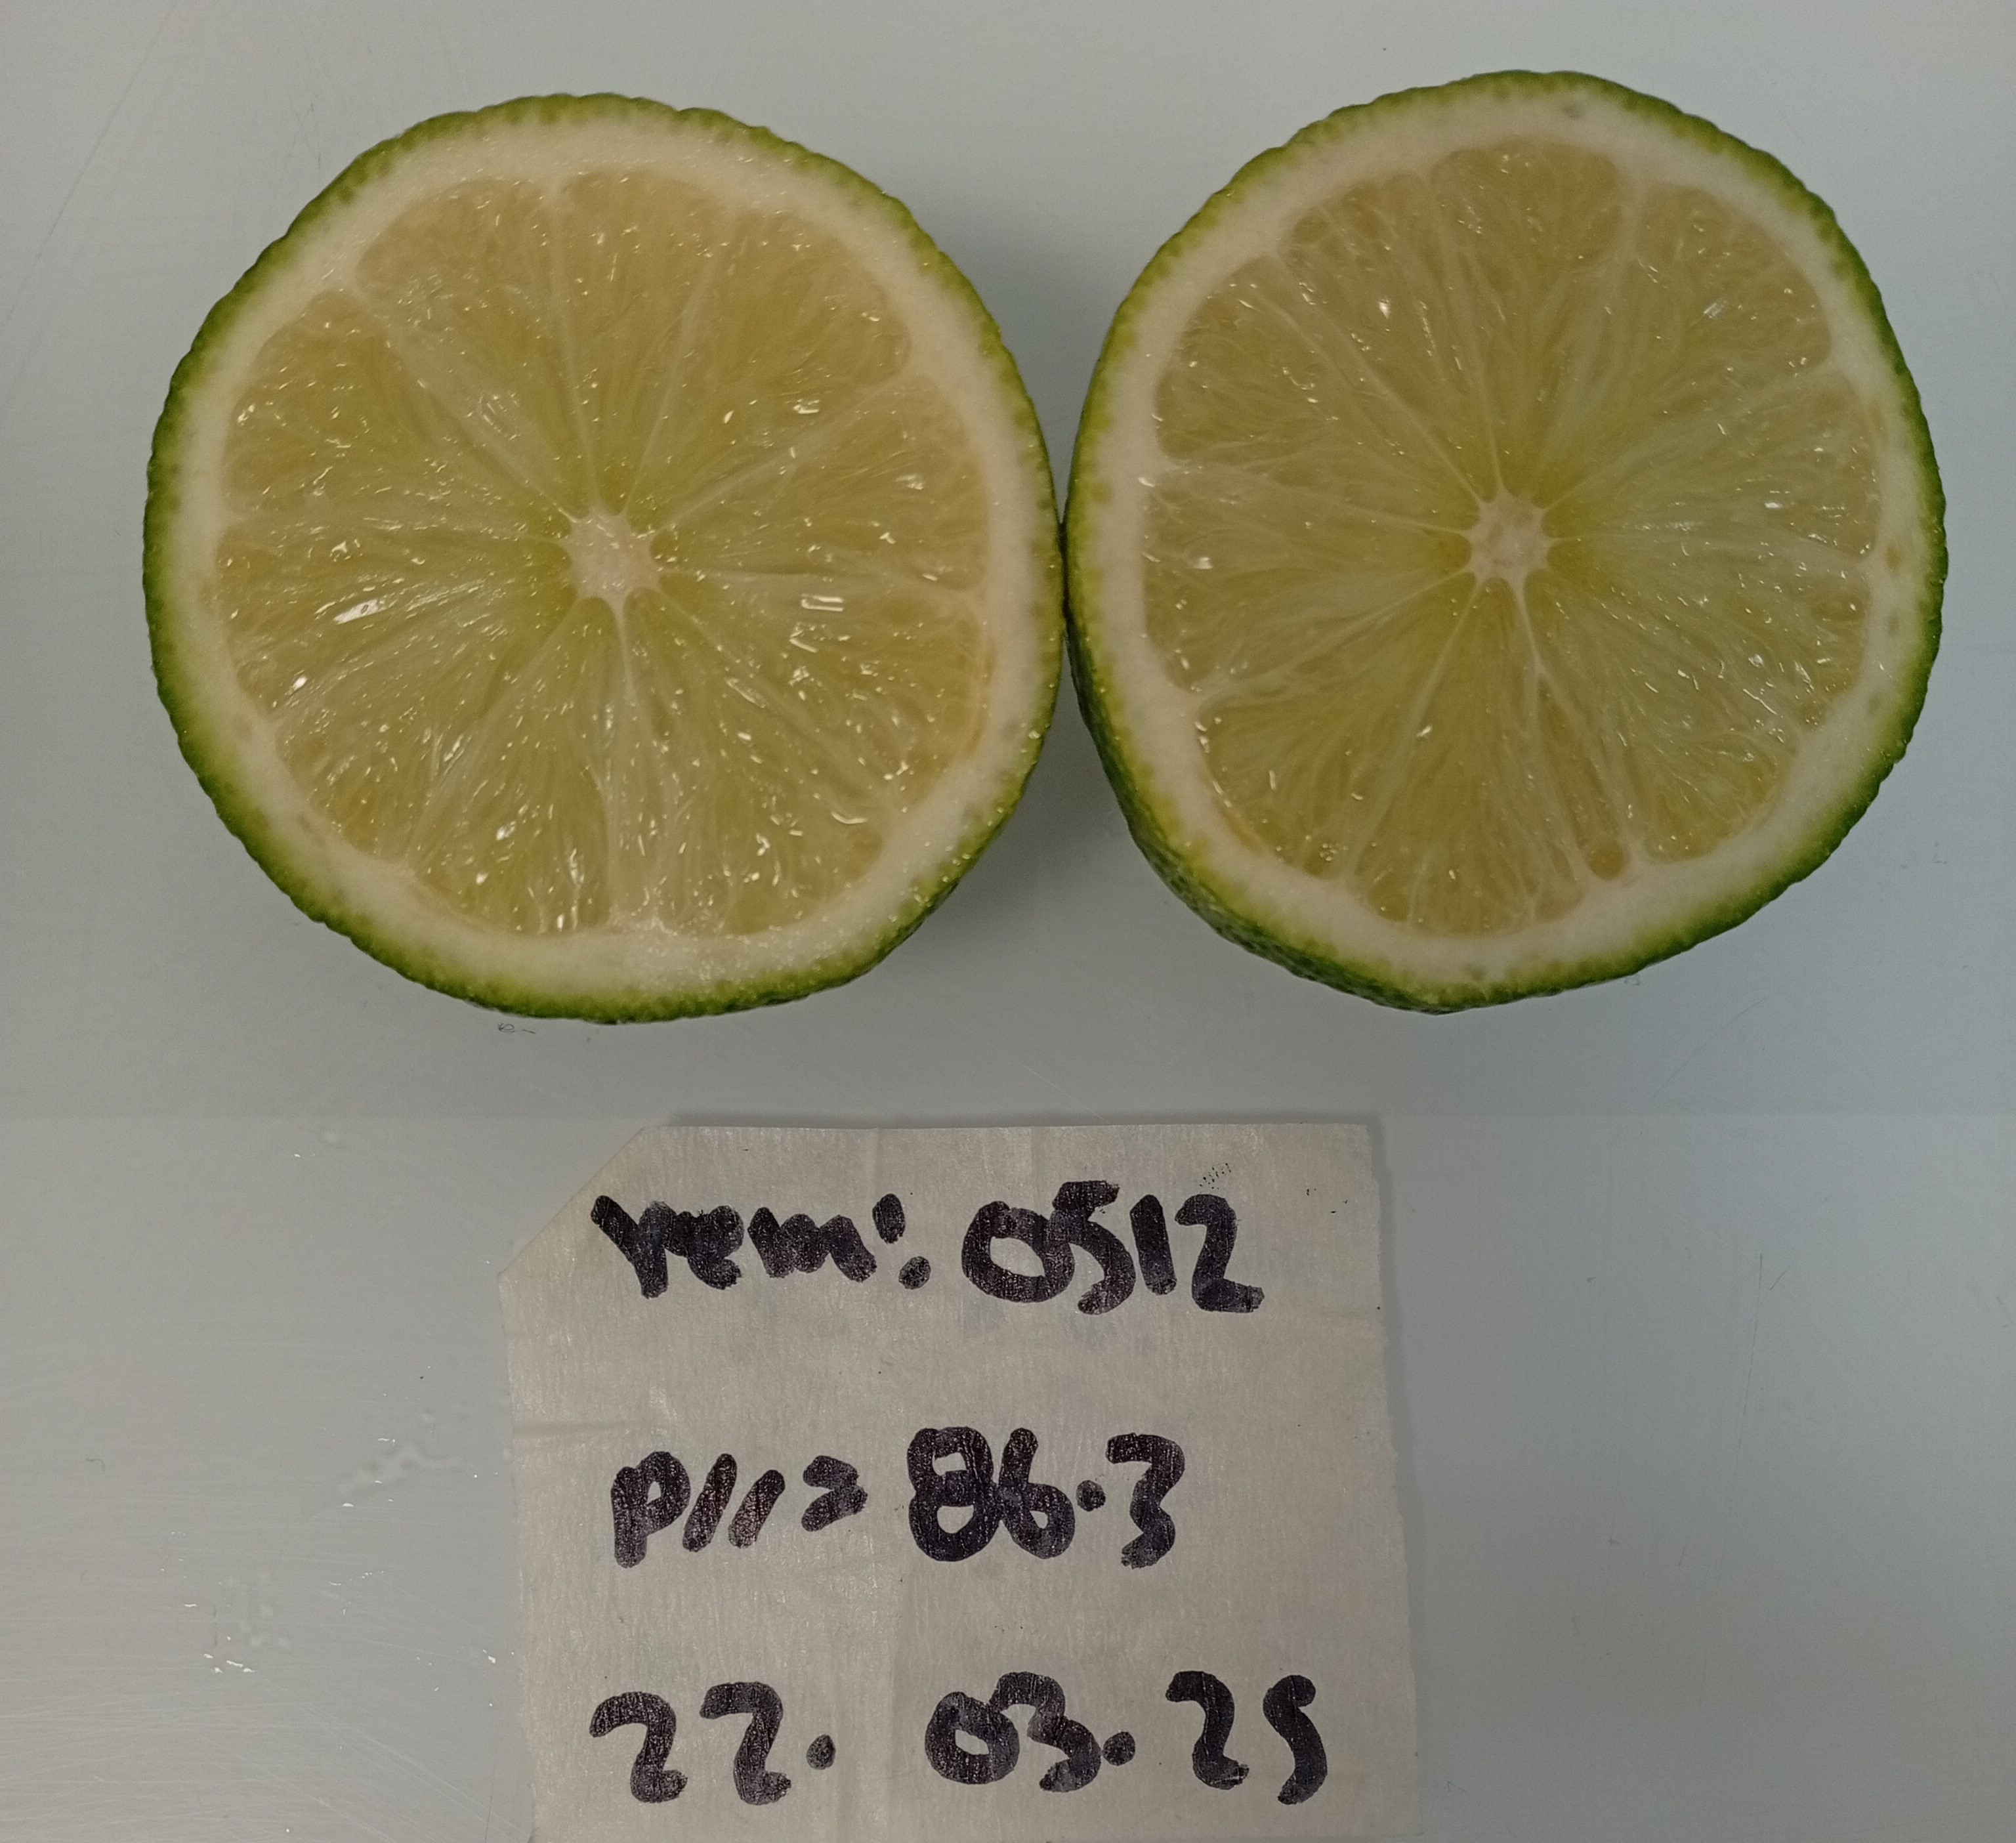 rem: 0512
P11= 86.3
22. 03. 25